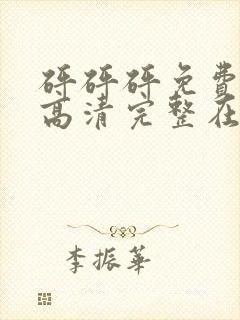 砰砰砰免费
高清完整在
李振华